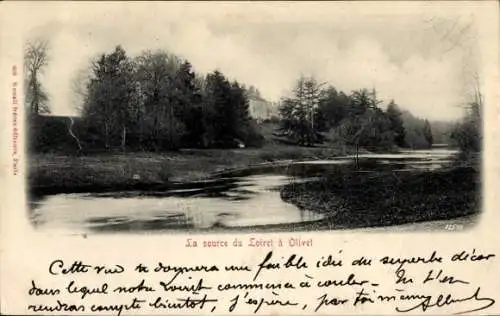 La source du Loiret à Olivet
Cette vue te donnera une faible idée du superbe décor
dans lequel notre Loiret commence à couler. M'en
rendras compte bientôt, j'espère, par toi même
Albert